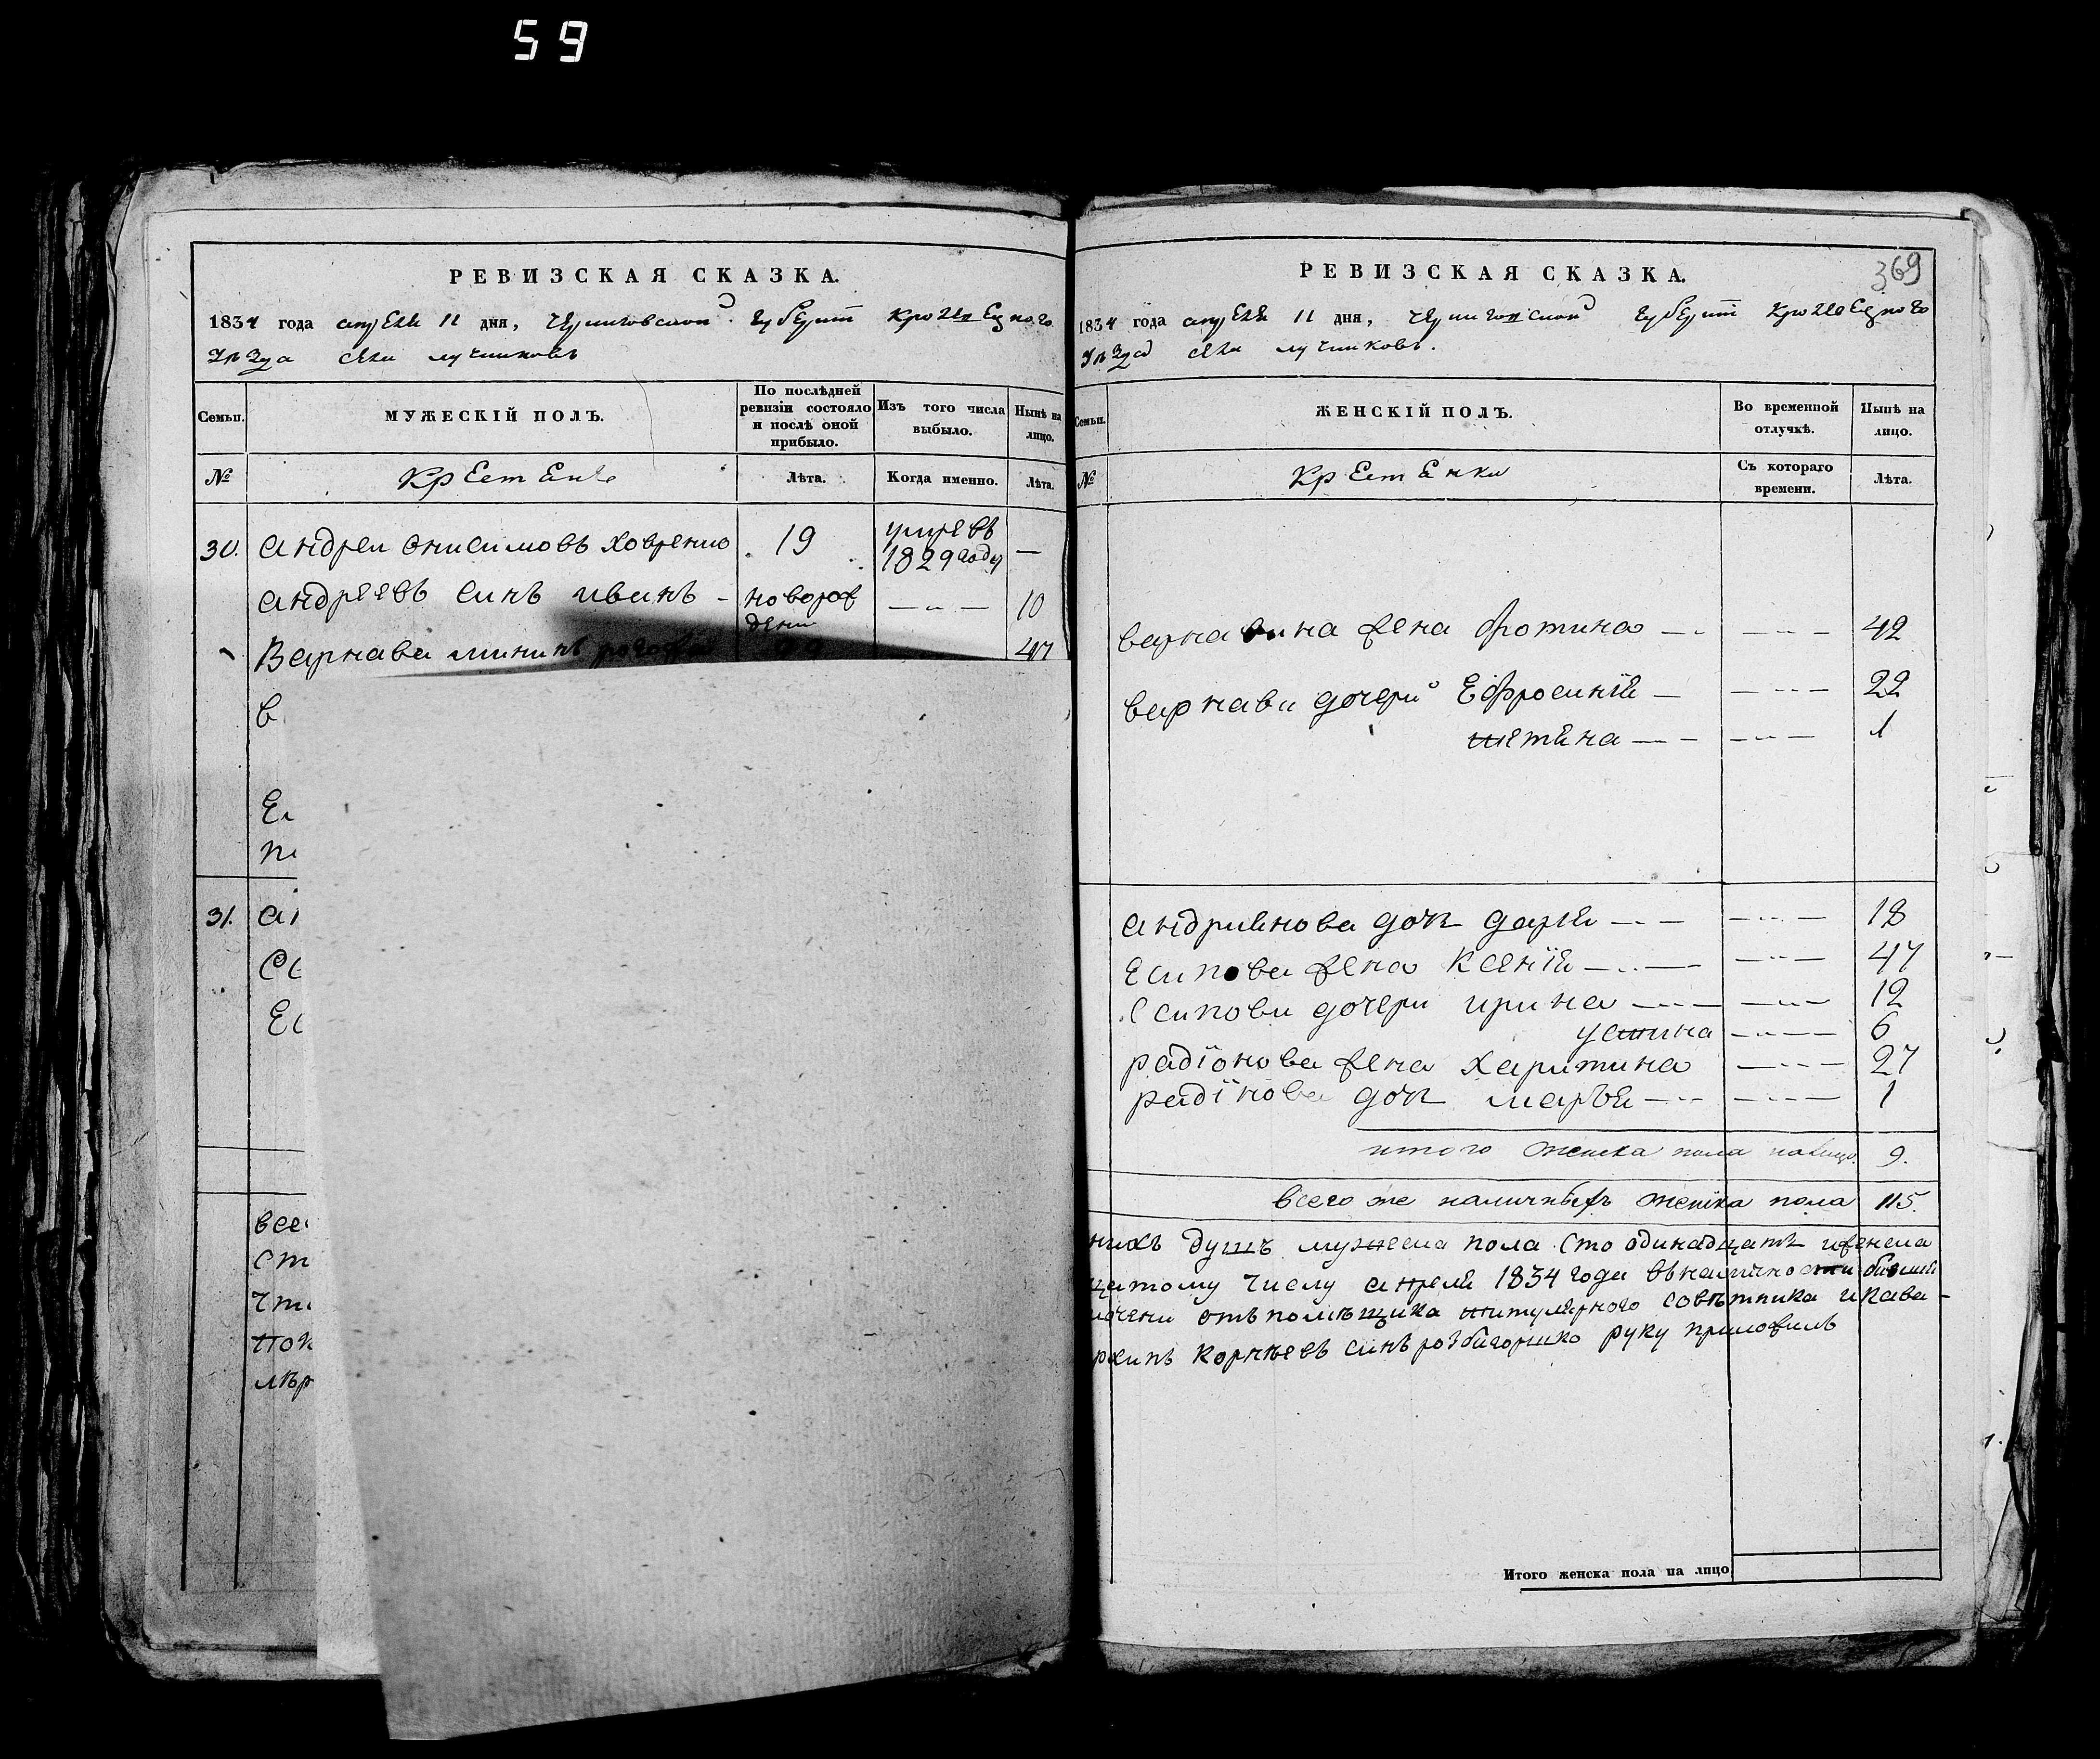 59
РЕВИЗСКАЯ СКАЗКА.
1834 года апреля 11 дня, черниговской губернии Кролевецкого
уѣзда села лучниковъ
Семьи.
МУЖЕСКІЙ ПОЛЪ.
По послѣдней ревизіи состояло и послѣ оной прибыло.
Изъ того числа выбыло.
Нынѣ на лицо.
№
Крестяне
Лѣта.
Когда именно.
Лѣта.
30. андрей онисимовъ ховренко 19 умревъ 1829 году —
андреевъ синъ иванъ - новорождени — 10
Варнава мининъ 47
в
Ел
31.
Ес
все
ст
пок
лѣр
РЕВИЗСКАЯ СКАЗКА.
369
1834 года апреля 11 дня, черниговской губернии Кролевецкого
уѣзда села лучниковъ.
Семьи.
ЖЕНСКІЙ ПОЛЪ.
Во временной отлучкѣ.
Нынѣ на лицо.
№
Крестянки
Съ котораго времени.
Лѣта.
варнавина жена фотина — 42
варнави дочери Ефросинія — 22
шетяна — 1
андриянова доч даря — 18
Есипова жена Ксенія — 47
Есипови дочери ирина — 12
устина — 6
радіонова жена Харитина — 27
радінова доч маръя — 1
итого женска пола налицо. 9.
всего же наличныхъ женска пола 115.
нихъ душъ мужеска пола сто одинадцать иженска
цатому числу апреля 1834 года вналичности бившия
очени отъ помѣщика титулярного совѣтника икава-
рхипъ Корнѣевъ синъ розбигоршко руку приложилъ
Итого женска пола на лицо